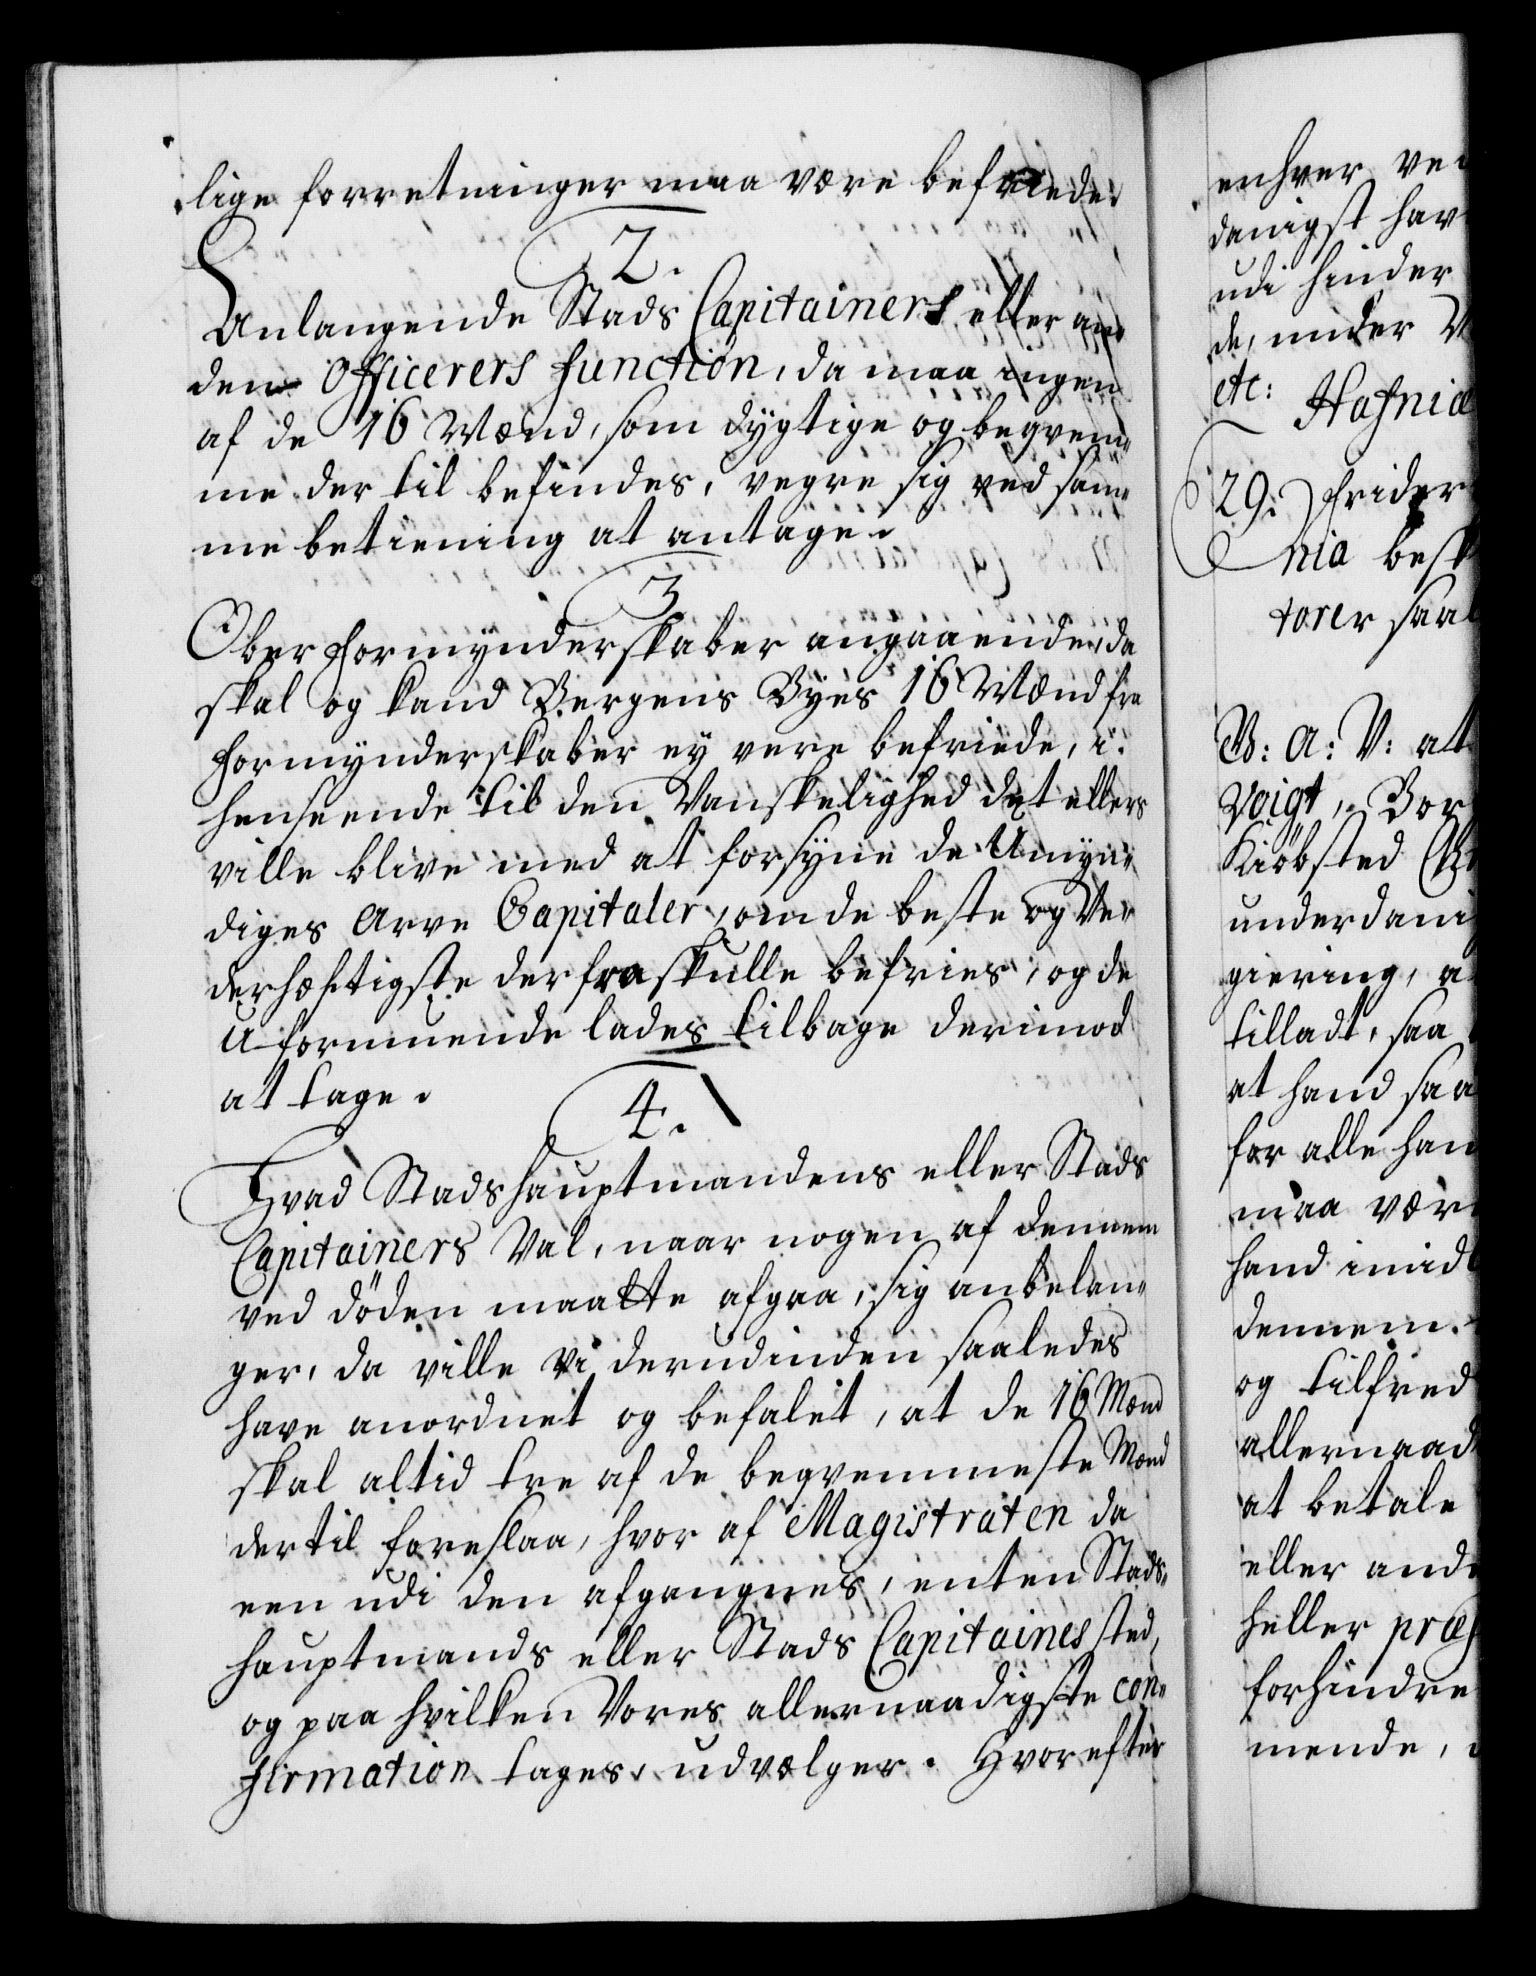 lige forretninger maa være befriede.
2.
Anlangende Stads Capitainers eller an-
den Officerers function, da maa ingen
af de 16 Mænd, som dygtige og beqvem-
me der til befindes, vegre sig ved sam-
me betiening at antage.
3.
Ober formynderskaber angaaende, da
skal og kand Bergens Byes 16 Mænd fra
formynderskaber ey vere befriede, i
henseende til den Vanskelighed det ellers
ville blive med at forsyne de Umyn-
diges Arve Capitaler, om de beste og Ve-
derhæftigste derfra skulle befries, og de
U-formuende lades tilbage derimod
at tage.
4.
Hvad Stadshauptmandens eller Stads
Capitainers Val, naar nogen af dennem
ved döden maatte afgaa, sig anbelan-
ger, da ville Vi derudinden saaledes
have anordnet og befalet, at de 16 Mænd
skal altid tre af de beqvemmeste Mænd
dertil foreslaa, hvor af Magistraten da
een udi den afgangnes, enten Stads-
hauptmands eller Stads Capitaines sted,
og paa hvilken Vores allernaadigste con-
firmation tages, udvælger. Hvorefter
enhver ved
danigst hav
udi hinder
de, under
etc: Hafniæ
29. Frider
nia besk
torer saa
B: A: V: at
Voigt, Bor
Kiöbsted
underdani
giering, a
tilladt, saa
at hand saa
for alle han
maa vær
hand imid
dennem
og tilfred
allernaad
at betale
eller and
heller præ
forhindre
mende,